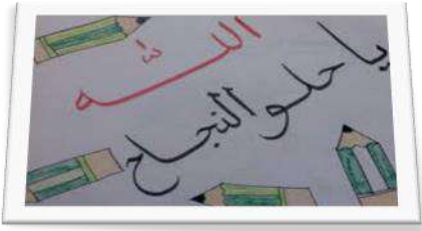 الله
يا حلو النجاح